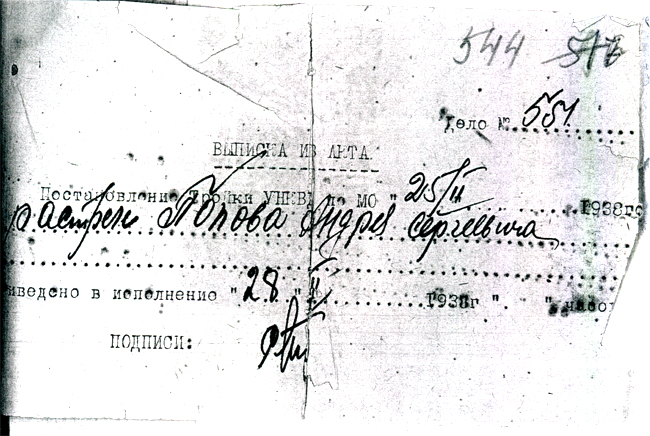 544 572
Дело № 551
ВЫПИСКА ИЗ АКТА
Постановление Тройки УНКВД по МО "25/II 1938го
расстрел Попова Андрея Сергеевича
иведено в исполнение "28" II 1938г " " часо
ПОДПИСИ: